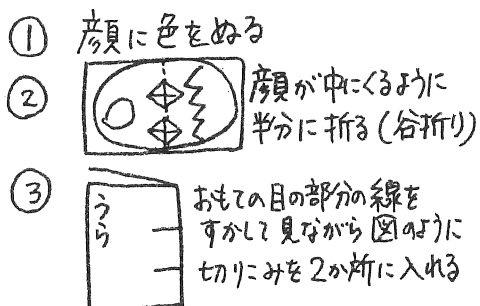 ① 顔に色をぬる
② 顔が中にくるように
半分に折る(谷折り)
③ おもての目の部分の線を
すかして見ながら図のように
切りこみを2か所に入れる
うら